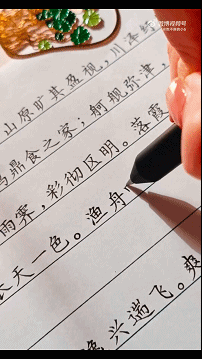 山原旷其盈视，川泽纡
鸣鼎食之家；舸舰弥津，
雨霁，彩彻区明。落霞
长天一色。渔舟
逸兴遄飞。爽